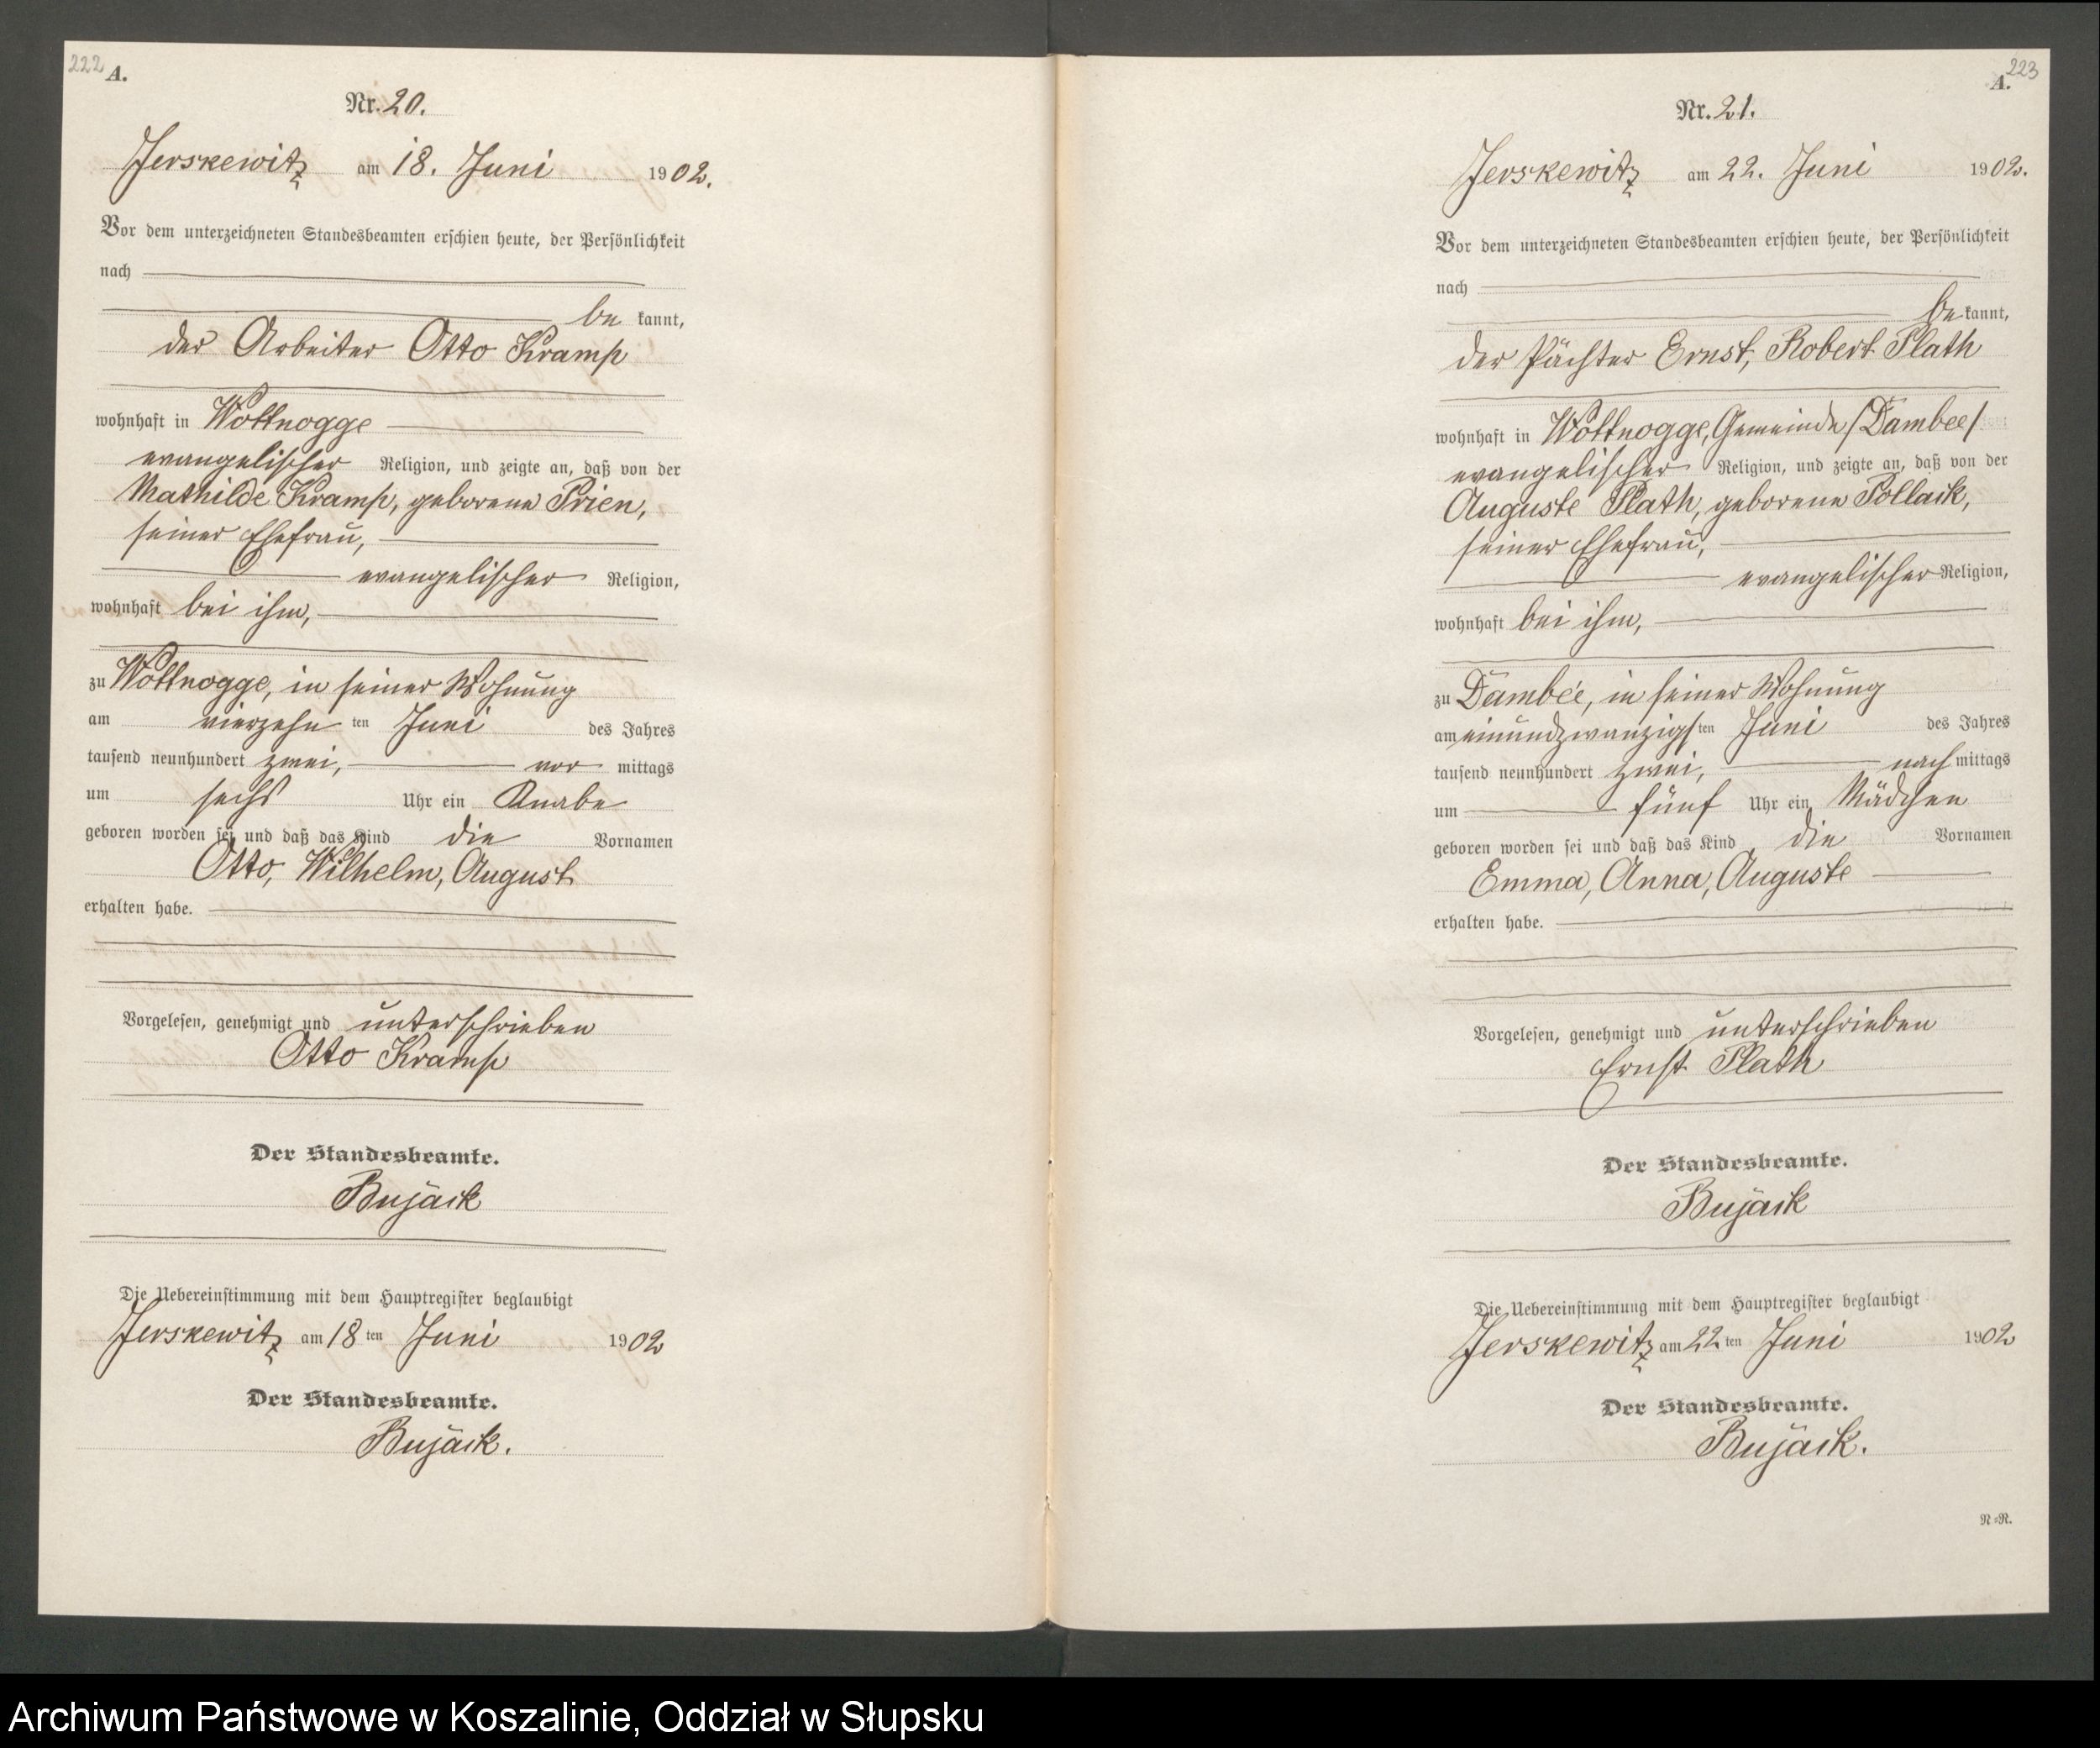 222 A.
Nr. 20.
Jerskewitz am 18. Juni 1902.
Vor dem unterzeichneten Standesbeamten erschien heute, der Persönlichkeit
nach
be kannt,
der Arbeiter Otto Kramp
wohnhaft in Wottnogge
evangelischer Religion, und zeigte an, daß von der
Mathilde Kramp, geborene Prien,
seiner Ehefrau,
evangelischer Religion,
wohnhaft bei ihm,
zu Wottnogge, in seiner Wohnung
am vierzehn ten Juni des Jahres
tausend neunhundert zwei, vor mittags
um sechs Uhr ein Knabe
geboren worden sei und daß das Kind die Vornamen
Otto, Wilhelm, August
erhalten habe.
Vorgelesen, genehmigt und unterschrieben
Otto Kramp
Der Standesbeamte.
Bujack
Die Uebereinstimmung mit dem Hauptregister beglaubigt
Jerskewitz am 18 ten Juni 1902
Der Standesbeamte.
Bujack.
A. 223
Nr. 21.
Jerskewitz am 22. Juni 1902.
Vor dem unterzeichneten Standesbeamten erschien heute, der Persönlichkeit
nach
be kannt,
der Pächter Ernst, Robert Plath
wohnhaft in Wottnogge, Gemeinde /Dambee/
evangelischer Religion, und zeigte an, daß von der
Auguste Plath, geborene Pollack,
seiner Ehefrau,
evangelischer Religion,
wohnhaft bei ihm,
zu Dambee, in seiner Wohnung
am einundzwanzigs ten Juni des Jahres
tausend neunhundert zwei, nach mittags
um fünf Uhr ein Mädchen
geboren worden sei und daß das Kind die Vornamen
Emma, Anna, Auguste
erhalten habe.
Vorgelesen, genehmigt und unterschrieben
Ernst Plath
Der Standesbeamte.
Bujack
Die Uebereinstimmung mit dem Hauptregister beglaubigt
Jerskewitz am 22 ten Juni 1902
Der Standesbeamte.
Bujack.
N=R.
Archiwum Państwowe w Koszalinie, Oddział w Słupsku